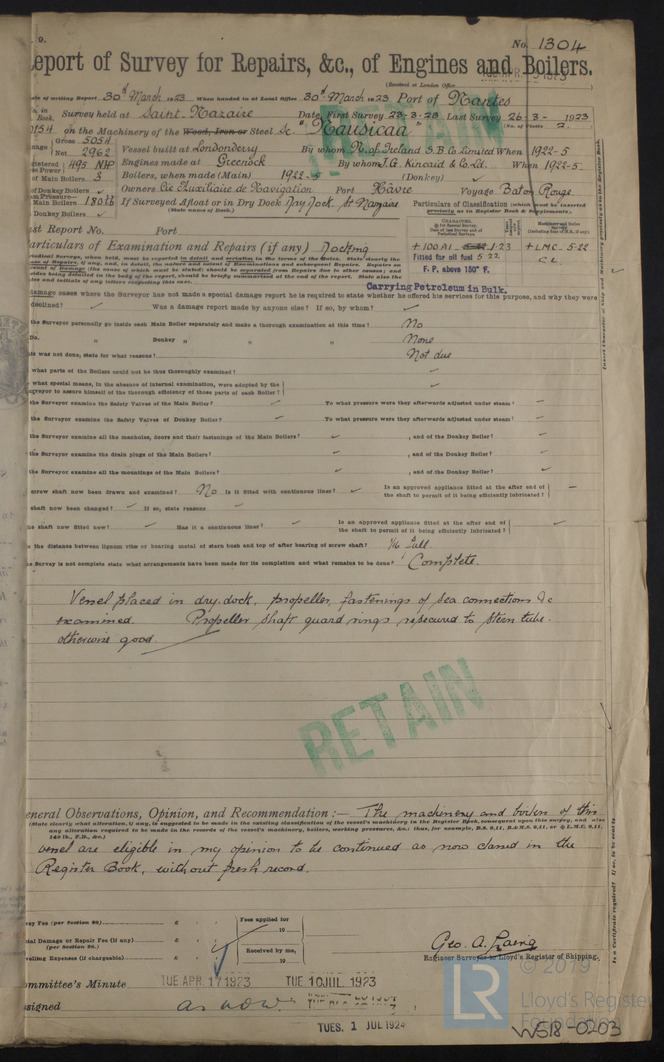 9.
No. 1304
eport of Survey for Repairs, &c., of Engines and Boilers.
(Received at London Office
ate of writing Report 30th March 1923 When handed in at Local Office 30th March 1923 Port of Nantes
No. in Reg. Book. Survey held at Saint. Nazaire Date, First Survey 23-3-23 Last Survey 26-3-1923
(No. of Visits 2.)
on the Machinery of the Wood, Iron or Steel Sc. "Nausicaa"
Gross 5054
Net 2962
Vessel built at Londonderry By whom N. of Ireland S. B. Co Limited When 1922-5
Engines made at Greenock By whom J. G. Kincaid & Co. Ld. When 1922-5
495 NHP
of Main Boilers 3
Boilers, when made (Main) 1922-5 (Donkey) ✓
of Donkey Boilers ✓
Owners Cie Auxiliaire de Navigation Port Hâvre Voyage Baton Rouge
Main Boilers 180 lb
Donkey Boilers ✓
If Surveyed Afloat or in Dry Dock Dry Dock. St Nazaire
(State name of Dock.)
Particulars of Classification (which must be inserted precisely as in Register Book & Supplements).
st Report No. Port
articulars of Examination and Repairs (if any) Docking
+100A1 1.23
+LMC. 5-22
Fitted for oil fuel 5.22
C.L.
F. P. above 150° F.
Carrying Petroleum in Bulk.
damage cases where the Surveyor has not made a special damage report he is required to state whether he offered his services for this purpose, and why they were
declined? ✓ Was a damage report made by anyone else? If so, by whom? ✓
the Surveyor personally go inside each Main Boiler separately and make a thorough examination at this time? No
Do. „ Donkey „ „ „ None
this was not done, state for what reasons? Not due
what parts of the Boilers could not be thus thoroughly examined? ✓
what special means, in the absence of internal examination, were adopted by the
surveyor to assure himself of the thorough efficiency of those parts of each Boiler? ✓
the Surveyor examine the Safety Valves of the Main Boiler? ✓ To what pressure were they afterwards adjusted under steam? ✓
the Surveyor examine the Safety Valves of Donkey Boiler? ✓ To what pressure were they afterwards adjusted under steam? ✓
the Surveyor examine all the manholes, doors and their fastenings of the Main Boilers? ✓ , and of the Donkey Boiler? ✓
the Surveyor examine the drain plugs of the Main Boilers? ✓ , and of the Donkey Boiler? ✓
the Surveyor examine all the mountings of the Main Boilers? ✓ , and of the Donkey Boiler? ✓
screw shaft now been drawn and examined? No Is it fitted with continuous liner? ✓ Is an approved appliance fitted at the after end of
the shaft to permit of it being efficiently lubricated? ✓
shaft now been changed? ✓ If so, state reasons ✓
the shaft now fitted new? ✓ Has it a continuous liner? ✓ Is an approved appliance fitted at the after end of
the shaft to permit of it being efficiently lubricated? ✓
the distance between lignum vitæ or bearing metal of stern bush and top of after bearing of screw shaft? 1/16 full
Survey is not complete state what arrangements have been made for its completion and what remains to be done? Complete.
Vessel placed in dry.dock, propeller, fastenings of sea connections &c
examined. Propeller shaft guard rings resecured to stern tube.
otherwise good.
RETAIN
eneral Observations, Opinion, and Recommendation:— The machinery and boilers of this
(State clearly what alteration, if any, is suggested to be made in the existing classification of the vessel's machinery in the Register Book, consequent upon this survey, and also
any alteration required to be made in the records of the vessel's machinery, boilers, working pressures, &c.; thus, for example,
vessel are eligible in my opinion to be continued as now classed in the
Register Book, without fresh record.
vey Fee (per Section 29) £ : :
ial Damage or Repair Fee (if any) £ : :
(per Section 29.)
velling Expenses (if chargeable) £ : :
Fees applied for
19
Received by me,
19
Geo. A. Laing
Engineer Surveyor to Lloyd's Register of Shipping.
ommittee's Minute TUE APR. 17 1923 TUE. 10 JUL 1923
ssigned as now.
TUES. 1 JUL 1924
LR
© 2019
Lloyd's Register
Foundation
W518-0203